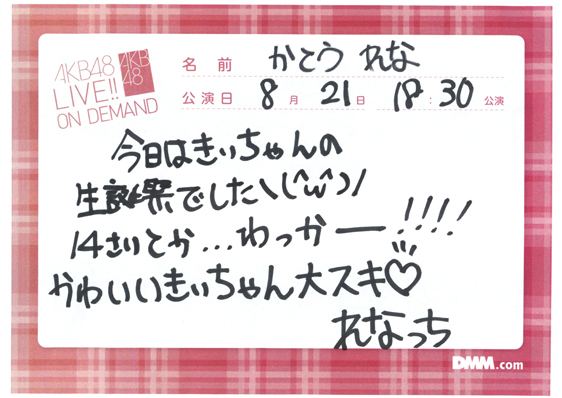 AKB48
LIVE!!
ON DEMAND
AKB
48
名前 かとう れな
公演日 8月 21日 18:30 公演
今日はきぃちゃんの
生誕祭でした\(^ω^)/
14さいとか...わっかー!!!!
かわいいきぃちゃん大スキ♡
れなっち
DMM.com